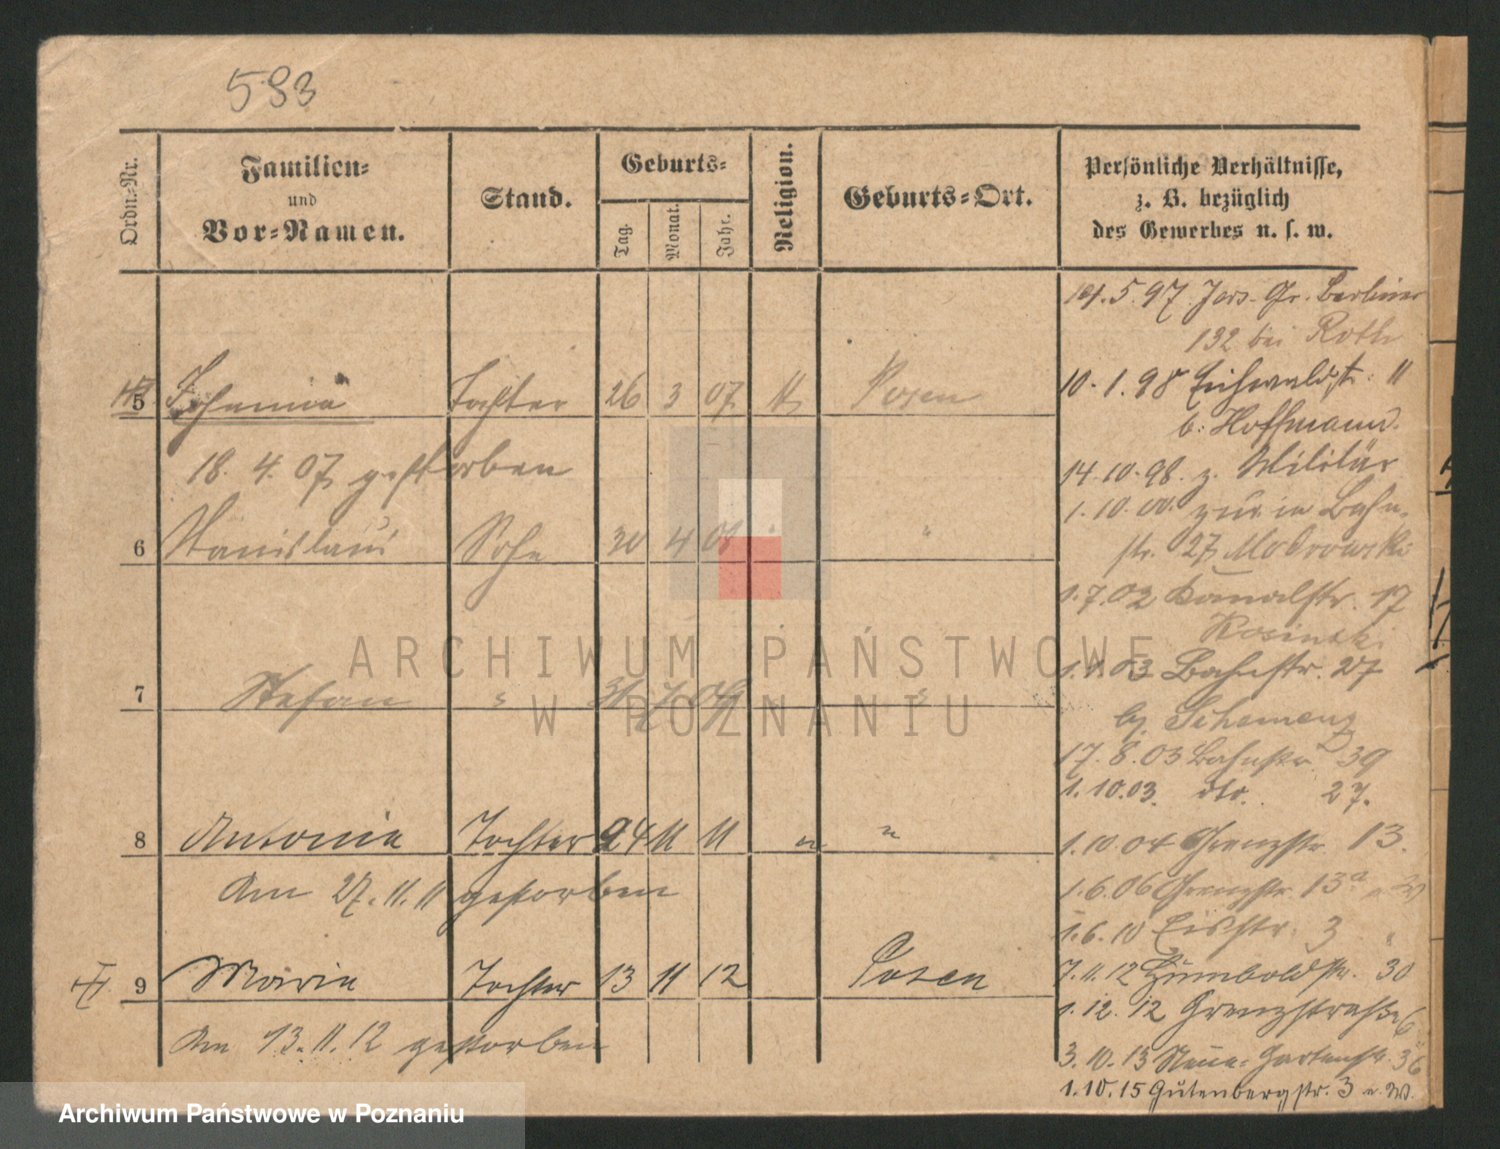 593
Ordn.-Nr.
Familien-
und
Vor-Namen.
Stand.
Geburts-
Tag.
Monat.
Jahr.
Religion.
Geburts-Ort.
Persönliche Verhältnisse,
z. B. bezüglich
des Gewerbes u. s. w.
5 Tochter 26 3 07 Posen
18. 4. 07 gestorben
6 Stanislaus Sohn 30 4 08 "
7 Stefan " 31 7 09 "
8 Antonie Tochter 24 11 11 " "
Am 27. 11. 11 gestorben
9 Maria Tochter 13 11 12 Posen
Am 13. 11. 12 gestorben
5. 97. Jers. Gr. Berliner
132 bei Roth
10. 1. 98 Eichwaldstr. "
b. Hoffmann.
14. 10. 98. z. Militär
1. 10. 00. zur. in Bahn-
str. 27 Modrowski
1. 7. 02 Kanalstr. 17
Rosinski
1. 1. 03 Bahnstr. 27
bj.
17. 8. 03 Bahnstr. 39
1. 10. 03. dto. 27.
1. 10 04 Grenzstr. 13.
1. 6. 06 Grenzstr. 13a
1. 6. 10 Eisstr. 3 "
7. 11. 12 Humboldstr. 30
1. 12. 12 Grenzstraße 6
3. 10. 13 Neue-Gartenstr. 36
1. 10. 15 Gutenbergstr. 3 e. W.
ARCHIWUM PAŃSTWOWE
W POZNANIU
Archiwum Państwowe w Poznaniu